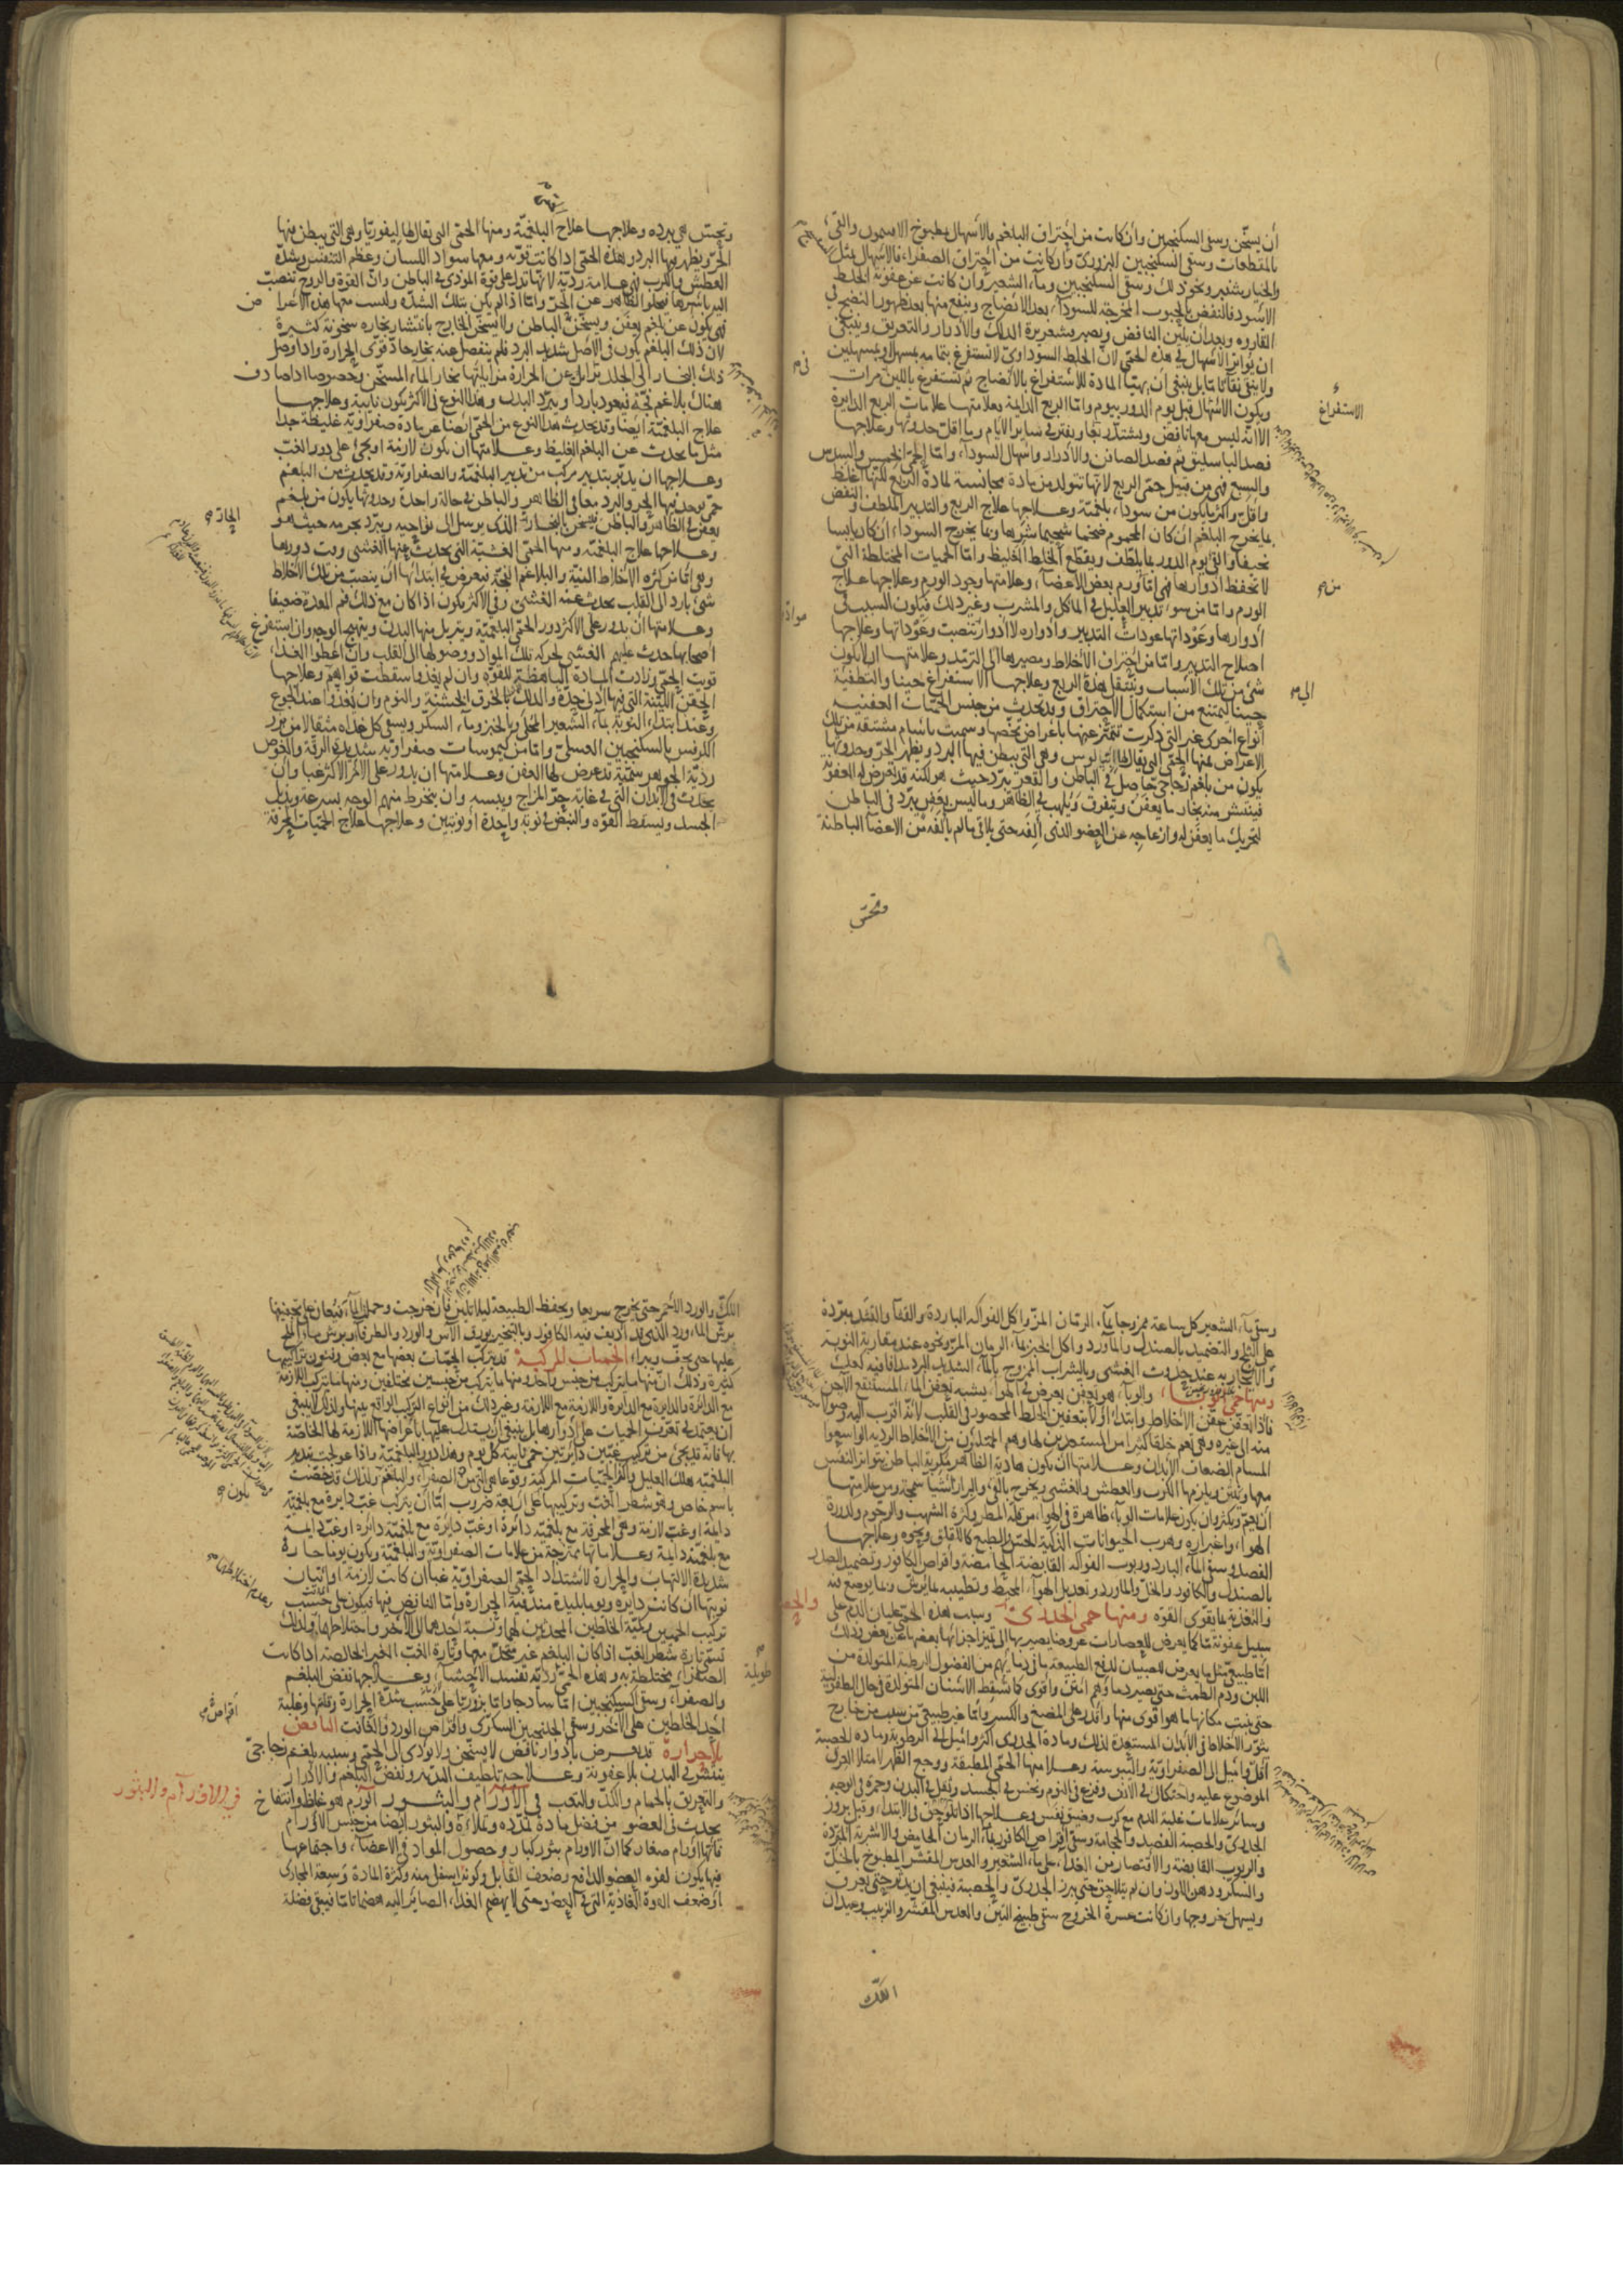 أن يسخن وسقى السكنجبين وان كانت من احتراق البلغم بالاسهال بمطبوخ الافتيمون والقئ
بالمقطعات وسقى السكنجبين البزورى وان كانت من احتراق الصفراء فالاسهال بمثل
والخيار شنبر ونحو ذلك وسقى السكنجبين وماء الشعير وان كانت عن عفونة الخلط
الاسود فالنفض بالحبوب المخرجة للسوداء بعد الانضاج وينفع منها بعد ظهور النضج في
القارورة وبعد ان يلين النافض ويصير قشعريرة الدلك والادرار والتعريق وينبغى
ان يواتر الاسهال في هذه الحمى لان الخلط السوداوى لا تستفرغ بتمامه بمسهل وبمسهلين
ينبغى ان يهيأ المادة للاستفراغ بالانضاج ثم تستفرغ باللين مرات
الاستفراغ
ويكون الاسهال قبل يوم الدور بيوم واما الربع الدايمة فعلامتها علامات الربع الدايرة
الا انه ليس معها نافض ويشتد ربعا ويفتر في ساير الايام وما اقل حدوثها وعلاجها
فصد الباسليق ثم فصد الصافن والادرار واسهال السوداء واما الحمى الخمس والسدس
والسبع فهى من قبيل حمى الربع لانها تتولد من مادة مجانسة لمادة الربع لكنها اغلظ
واقل واكثر ما يكون من سوداء بلغمية وعلاجها علاج الربع والتدبير الملطف والنفض
بما يخرج البلغم ان كان المحموم ضخما شحيما شرها وبما يخرج السوداء ان كان يابسا
نحيفا والقئ يوم الدور بما يلطف ويقطع الخلط الغليظ واما الحميات المختلطة التى
لا تحفظ ادوارها فهى اما من ورم بعض الاعضاء وعلامتها وجود الورم وعلاجها علاج
الورم واما من سوء تدبير العليل في المأكل والمشرب وغير ذلك فيكون السبب في
ادوارها وعوداتها عودات التدبير وادواره لا ادوار تنصب وعوداتها وعلاجها
اصلاح التدبير واما من احتراق الاخلاط ومصيرها الى الترمد وعلامتها ان لا يكون
شئ من تلك الاسباب وتنتقل هذه الى الربع وعلاجها الاستفراغ حينا والتطفية
حينا ليمتنع من استكمال الاحتراق وقد تحدث من جنس الحميات العفنية
انواع اخرى غير التى ذكرت تتميز عنها باعراض تخصها وسميت باسام مشتقة من تلك
الاعراض فمنها الحمى التى يقال لها انفيالوس وهى التى يبطن فيها البرد ويظهر الحر وحدوثها
يكون من بلغم زجاجى حاصل في الباطن والقعر يبرد حيث هو لكنه قد تعرض له العفونة
فينتشر منه بخار ما يعفن ويتفرق ويلهب في الظاهر وما ليس يعفن يبرد في الباطن
لتحريك ما يعفن له وازعاجه عن العضو الذى الفه حتى يلاقى ما لم يألفه من الاعضاء الباطنة
وتحس
وتحس هى ببرده وعلاجها علاج البلغمية ومنها الحمى التى يقال لها ليفوريا وهى التى يبطن فيها
الحر ويظهر فيها البرد وهذه الحمى اذا كانت قوية ومعها سواد اللسان وعظم التنفس وشدة
العطش والكرب فهى علامة ردية لانها تدل على قوة المؤذى في الباطن وان القوة والروح تنصب
اليه باسرها فيخلو الظاهر عن الحر واما اذا لم يكن بتلك الشدة وليست معها هذه الاعراض
فهى يكون عن بلغم يعفن ويسخن الباطن ولا يسخن الخارج بانتشار بخاره سخونة كثيرة
لان ذلك البلغم يكون في الاصل شديد البرد فلم ينفصل عنه بخار حاد قوى الحرارة واذا وصل
ذلك البخار الى الجلد تزايل عن الحرارة مزايلتها بخار الماء المسخن وخصوصا اذا صادف
هناك بلاغم فجة فيعود باردا ويبرد البدن وهذا النوع في الاكثر يكون نايبة وعلاجها
علاج البلغمية ايضا وقد يحدث هذا النوع من الحمى ايضا عن مادة صفراوية غليظة جدا
مثل ما يحدث عن البلغم الغليظ وعلامتها ان يكون لازمة او يجئ على دور الغب
وعلاجها ان يدبر بتدبير مركب من تدبير البلغمية والصفراوية وقد يحدث من البلغم
حمى يوجد فيها الحر والبرد معا في الظاهر والباطن في حالة واحدة وحدوثها يكون من بلغم
يعفن في الظاهر والباطن فيسخن بالبخار الذى يرسل الى نواحيه ويبرد بجرمه حيث هو
وعلاجها علاج البلغمية ومنها الحمى الغشيية التى يحدث فيها الغشى وقت دورها
وهى اما من كثرة الاخلاط النية والبلاغم الفجة فيعرض في ابتدائها ان ينصب من تلك الاخلاط
شئ بارد الى القلب يحدث عنه الغشى وفى الاكثر يكون اذا كان مع ذلك فم المعدة ضعيفا
وعلامتها ان يدور على الاكثر دور الحمى البلغمية ويتربل منها البدن ويتهيج الوجه وان استفرغ
اصحابها حدث عليهم الغشى لحركة تلك المواد ووصولها الى القلب وان اعطوا الغذاء
قويت الحمى وزادت المادة الباهظة للقوة وان لم يغذوا سقطت قواهم وعلاجها
الحقن اللينة التى فيها ادنى حدة والدلك بالخرق الخشنة والنوم وان يغذوا عند الجوع
وعند ابتداء النوبة بماء الشعير المحلى وبالخبز وماء السكر ويسقى كل غداه مثقالا من بزر
الكرفس بالسكنجبين العسلى واما من كيموسات صفراوية شديدة الرقة والغوص
ردية الجوهر سمية قد عرض لها العفن وعلامتها ان يدور على الامر الاكثر غبا وان
يحدث في الابدان التى في غاية حر المزاج ويبسه وان ينخرط منهم الوجه بسرعة ويذبل
الجسد ويسقط القوة والنبض في نوبة واحدة او نوبتين وعلاجها علاج الحميات المحرقة
وسقى ماء الشعير كل ساعة ممزوجا بماء الرمان المز واكل الفواكه الباردة والقثا والقثد مبردة
على الثلج والتضميد بالصندل والماورد واكل الخبز بماء الرمان المز ونحوه عند مقاربة النوبة
والايجار به عند حدوث الغشى وبالشراب الممزوج بالماء الشديد البرد مدافا فيه لعاب
ومنها حمى الوباء والوباء هو تعفن يعرض في الهواء يشبه تعفن الماء المستنقع الآجن
فاذا تعفن عفن الاخلاط وابتدا اولا بتعفين الخلط المحصور في القلب لانه اقرب اليه وصولا
منه الى غيره وهى تعم خلقا كثيرا من المستعدين لها وهم الممتلؤن من الاخلاط الردية الواسعوا
المسام الضعاف الابدان وعلامتها ان يكون هادية الظاهر مكربة الباطن يتواتر النفس
معها وينتن ويلزمها الكرب والعطش والغشى ويخرج بالقئ والبراز اشيا سمجة ومن علامتها
ان يعم ويكثر وان يكون علامات الوباء ظاهرة في الهواء من قلة المطر وكثرة الشهب والرجوم وكدورة
الهواء واغبراره وهرب الحيوانات الذكية الحس والطبع كاللقلق ونحوه وعلاجها
الفصد وسقى الماء البارد وربوب الفواكه القابضة الحامضة واقراص الكافور وتضميد الصدر
بالصندل والكافور والخل والماورد وتعديل الهواء المحيط وتطييبه بما يرش وبما يوضع فيه
والتغذية بما يقوى القوة ومنها حمى الجدرى وسبب هذه الحمى غليان الدم على
سبيل عفونة ما كما يعرض للعصارات عروضا يصير بها الى تميز اجزائها بعضها عن بعض وذلك
اما طبيعى مثل ما يعرض للصبيان لدفع الطبيعة ما في دمائهم من الفضول الرطبة المتولدة من
اللبن ودم الطمث حتى يصير دماؤهم امتن واقوى كما تسقط الاسنان المتولدة في حال الطفولية
حتى ينبت مكانها ما هو اقوى منها واقدر على المضغ والكسر واما غير طبيعى من سبب من خارج
يثور الاخلاط في الابدان المستعدة لذلك ومادة الجدرى اكثر واميل الى الرطوبة ومادة الحصبة
اقل واميل الى الصفراوية واليبوسة وعلامتها الحمى المطبقة ووجع الظهر لامتلاء العرق
الموضوع عليه واحتكاك في الانف وفزع في النوم ونخس في الجسد وثقل في البدن وحمرة في الوجه
وسائر علامات غلبة الدم مع كرب وضيق نفس وعلاجها اذا تلوحق في الابتداء وقبل بروز
الجدرى والحصبة الفصد والحجامة وسقى اقراص الكافور بماء الرمان الحامض والاشربة المبردة
والربوب القابضة والاقتصار من الغذاء على ماء الشعير والعدس المقشر المطبوخ بالخل
والسكر ودهن اللوز وان لم يتلاحق حتى برز الجدرى والحصبة فينبغى ان يدثر حتى يعرق
ويسهل خروجها وان كانت عسرة الخروج سقى طبيخ التين والعدس المقشر والزبيب وعيدان
اللك
اللك والورد الاحمر حتى يخرج سريعا ويحفظ الطبيعة ليلا تلين فان خرجت وحملت الماء فيعان على تجفيفها
برش الماورد الذى قد اديف فيه الكافور وبالتبخير بورق الآس والورد والطرفاء وبرش ماء الملح
عليها حتى يجف ويبرا الحميات المركبة قد يتركب الحميات بعضها مع بعض وفنون تراكيبها
كثيرة وذلك ان منها ما يتركب من جنس واحد ومنها ما يتركب من جنسين مختلفين ومنها ما يتركب اللازمة
مع الدائرة والدايرة مع الدايرة واللازمة مع اللازمة وغير ذلك من انواع التركيب الواقع بينها ولذلك لا ينبغى
ان يعتمد في تعرف الحميات على ادوارها بل ينبغى ان يستدل عليها باعراضها اللازمة لها الخاصة
بها فانه قد يجئ من تركيب غبين دايرتين حمى نايبة كل يوم وهذا دور البلغمية واذا عولجت بتدبير
البلغمية هلك العليل واكثر الحميات المركبة وقوعا هى التى من الصفراء والبلغم ولذلك قد خصت
باسم خاص وهو شطر الغب وتركيبها على اربعة ضروب اما ان يتركب غب دايرة مع بلغمية
دايمة او غب لازمة وهى المحرقة مع بلغمية دائرة او غب دايرة مع بلغمية دائرة او غب دايمة
مع بلغمية دايمة وعلاماتها ممتزجة من علامات الصفراوية والبلغمية ويكون يوما حارة
شديدة الالتهاب والحرارة لاشتداد الحمى الصفراوية غبا ان كانت لازمة او اتيان
نوبتها ان كانت دايرة ويوما بليدة مندفنة الحرارة واما النافض فيها فيكون على حسب
تركيب الحميين وكمية الخلطين المحدثين لهما ونسبة احدهما الى الآخر واختلاطها ولذلك
تسمى تارة شطر الغب اذا كان البلغم غير متحد معها وتارة الغب الغير الخالصة اذا كانت
الصفراء مختلطة به وهذه الحمى ردية تفسد الاحشاء وعلاجها نفض البلغم
والصفراء وسقى السكنجبين اما ساذجا واما بزوريا على حسب شدة الحرارة وقلتها وغلبة
احد الخلطين على الآخر وسقى الجلنجبين السكرى واقراص الورد والغافث النافض
بلا حرارة قد يعرض بادوار نافض لا يسخن ولا يؤدى الى الحمى وسببه بلغم زجاجى
ينتشر في البدن بلا عفونة وعلاجه تلطيف التدبير ونفض البلغم والادرار
والتعريق بالحمام والدلك والتعب في الاورام والبثور الورم هو غلظ وانتفاخ
في الاورام والبثور
يحدث في العضو من فضل مادة تمدده وتملاءه والبثور ايضا من جنس الاورام
فانها اورام صغار كما ان الاورام بثور كبار وحصول المواد في الاعضاء واجتماعها
فيها يكون لقوة العضو الدافع وضعف القابل وكونه اسفل منه وكثرة المادة وسعة المجارى
او ضعف القوة الغاذية التى في العضو حتى لا يهضم الغذاء الصائر اليه هضما تاما فيبقى فضلة